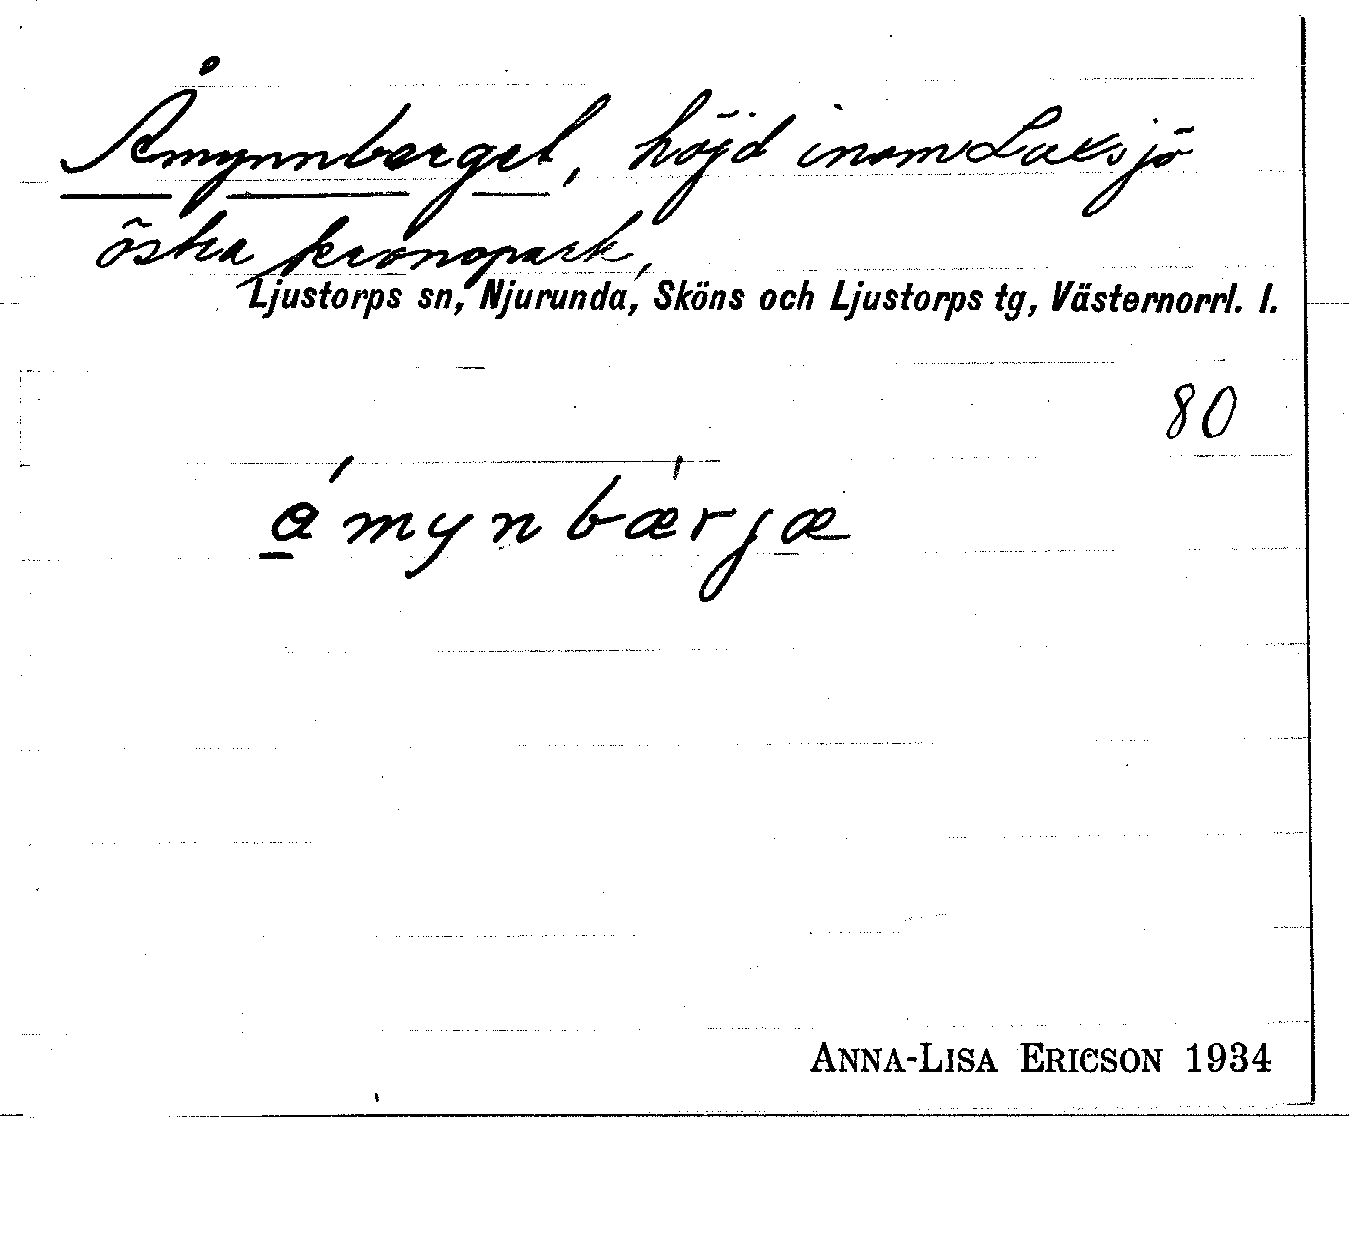 Åmynnberget, höjd inom Laksjö
östra kronopark,
Ljustorps sn, Njurunda, Sköns och Ljustorps tg, Västernorrl. l.
80
a̲´mynbæ̀rjæ
ANNA-LISA ERICSON 1934